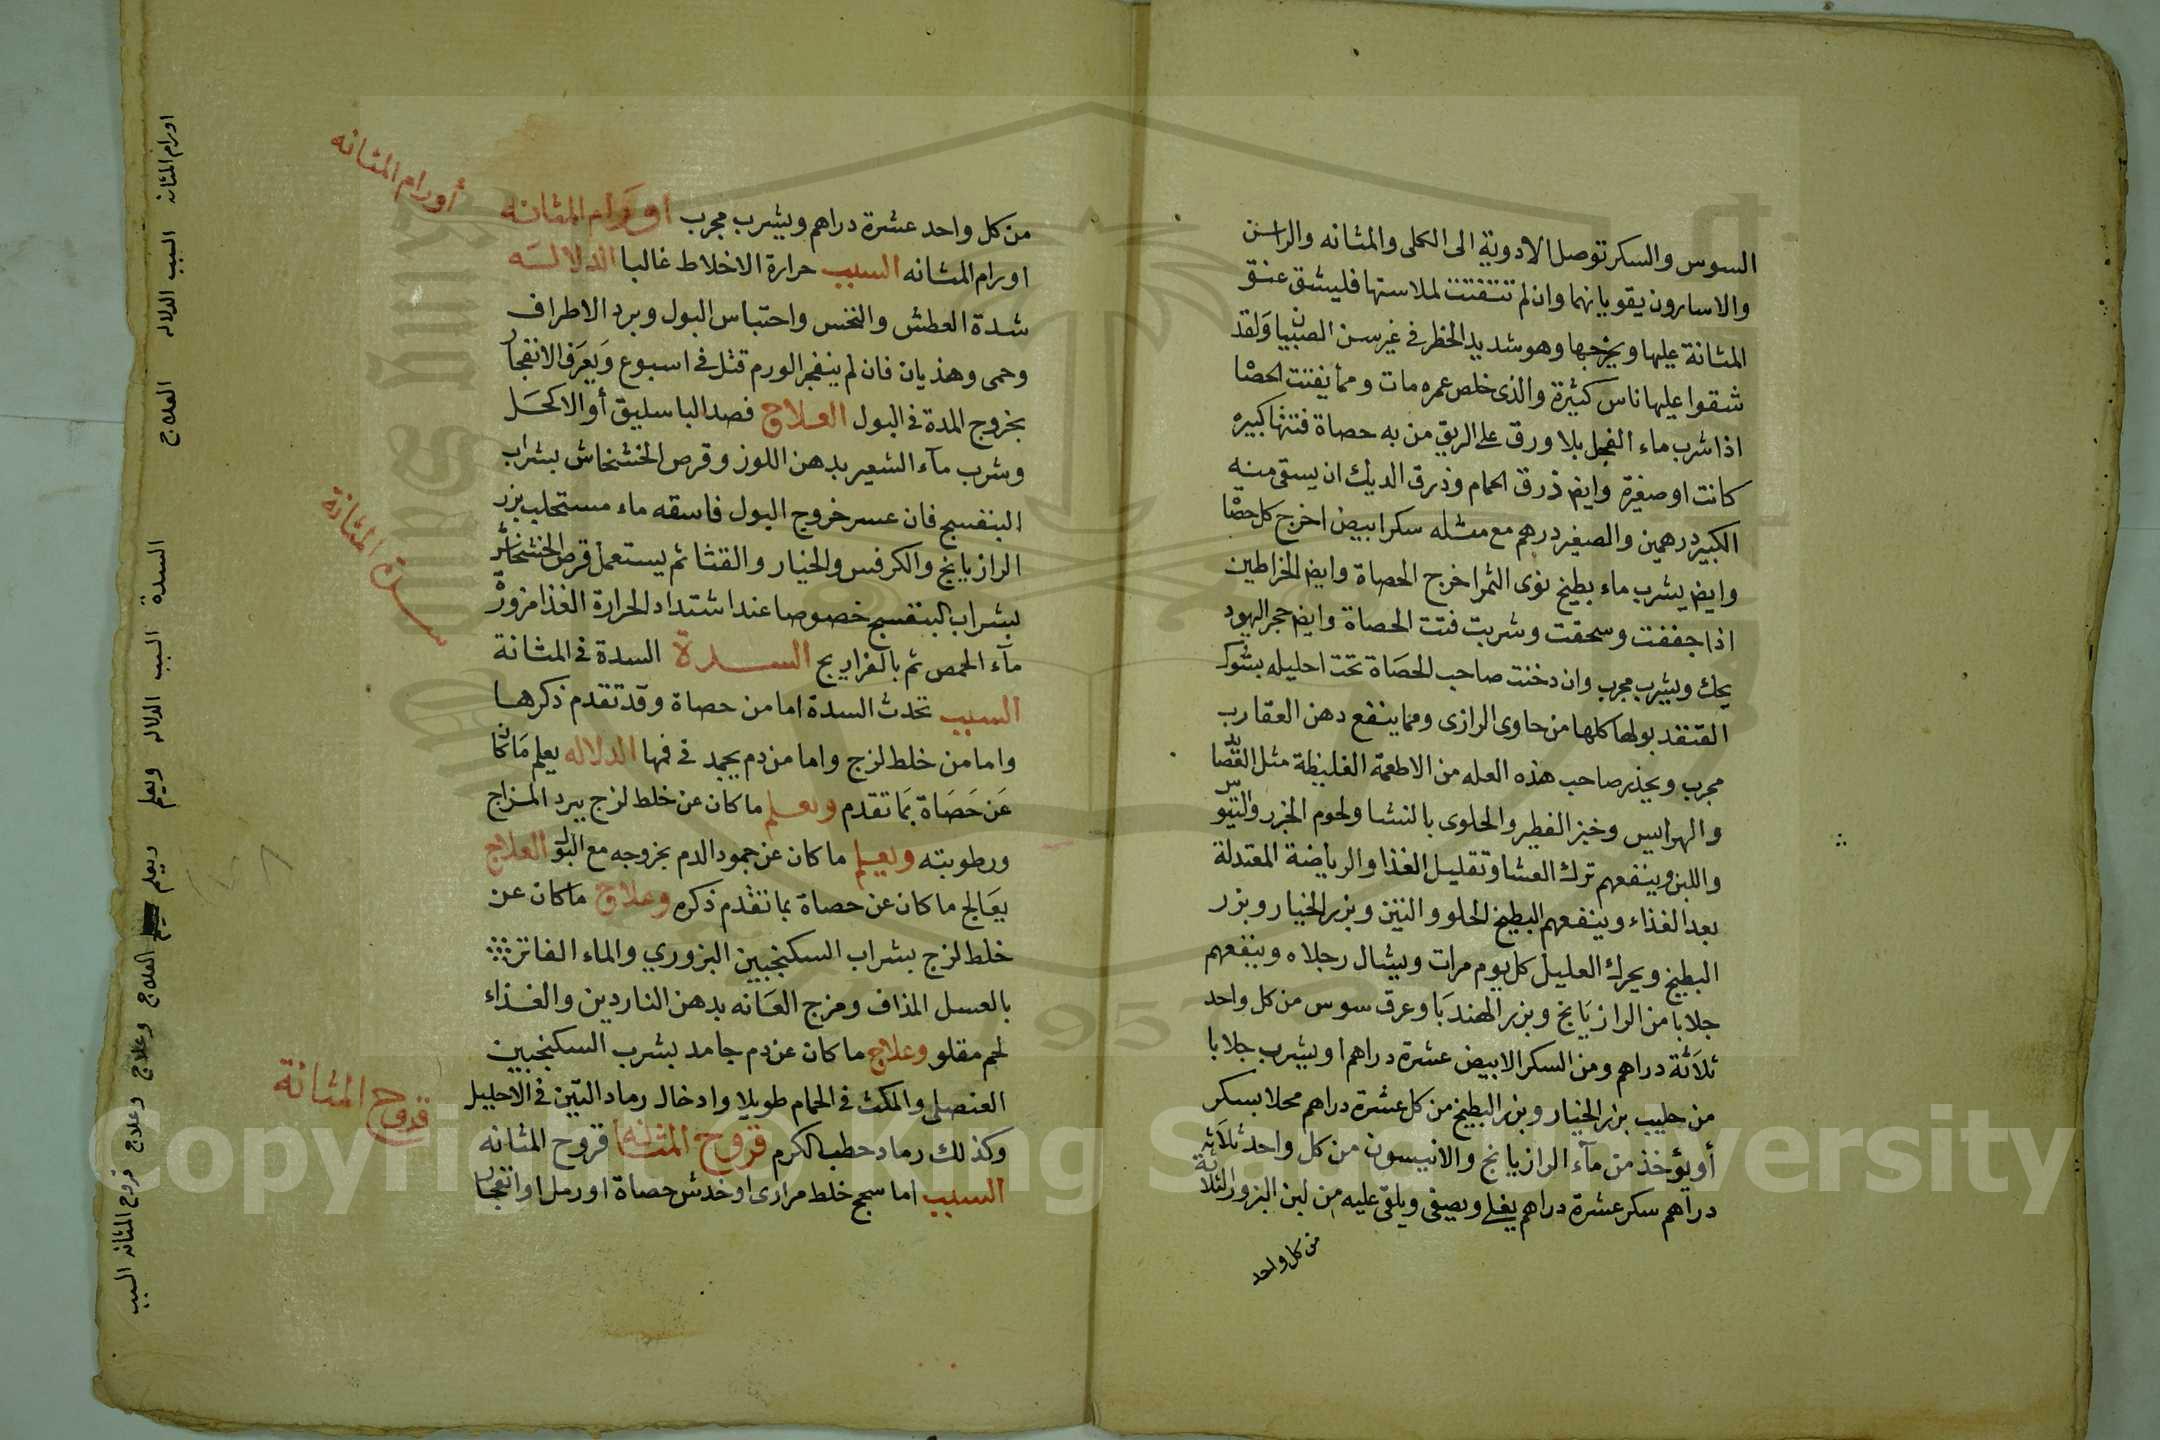 السوس والسكر توصل الادوية الى الكلى والمثانه والراسن
والاسارون يقويانهما وان لم تتفتت لملاستها فليشق عنق
المثانة عليها ويخرجها وهو شديد الخطر في غير سن الصبيان ولقد
شقوا عليها ناس كثيرة والذى خلص عمره مات ومما يفتت الحصا
اذا شرب ماء الفجل بلا ورق على الريق من به حصاة فتتها كبيره
كانت او صغيرة وايض ذرق الحمام وذرق الديك ان يسقى منه
الكبير درهمين والصغير درهم مع مثله سكرا بيض اخرج كل حصا
وايض يشرب ماء بطيخ نوى التمر اخرج الحصاة وايض الخراطين
اذا جففت وسحقت وشربت فتت الحصاة وايض حجر اليهود
يحك ويشرب مجرب وان دخنت صاحب الحصاة تحت احليله بشوك
القنفد بولها كلها من حاوى الرازى ومما ينفع دهن العقارب
مجرب ويحذر صاحب هذه العله من الاطعمة الغليظة مثل القضا
والهرايس وخبز الفطير والحلوى بالنشا ولحوم الجزر والتيوس
واللبن وينفعهم ترك العشا وتقليل الغذا والرياضة المعتدلة
بعد الغذاء وينفعهم البطيخ الحلو والتين وبزر الخيار وبزر
البطيخ ويحرك العليل كل يوم مرات ويشال رجلاه وينفعهم
جلابا من الرازيانج وبزر الهندبا وعرق سوس من كل واحد
ثلاثة دراهم ومن السكر الابيض عشرة دراهم او يشرب جلابا
من حليب بزر الخيار وبزر البطيخ من كل عشرة دراهم محلا بسكر
أو يؤخذ من مآء الرازيانج والانيسون من كل واحد ثلاثة
دراهم سكر عشرة دراهم يغلى ويصفى ويلقى عليه من لبن البزور الثلاثة
من كل واحد
من كل واحد عشرة دراهم ويشرب مجرب اورام المثانه
اورام المثانه السبب حرارة الاخلاط غالبا الدلالسه
شدة العطش والنخس واحتباس البول وبرد الاطراف
وحمى وهذيان فان لم ينفجر الورم قتل في اسبوع ويعرف الانفجار
بخروج المدة في البول العلاج فصد الباسليق أو الاكحل
وشرب مآء الشعير بدهن اللوز وقرص الخشخاش بشراب
البنفسج فان عسر خروج البول فاسقه ماء مستحلب بزر
الرازيانج والكرفس والخيار والقثا ثم يستعمل قرص الخشخاش
بشراب البنفسج خصوصا عند اشتداد الحرارة الغذا مزورة
مآء الحمص ثم بالفراريج السدة السدة في المثانة
السبب تحدث السدة اما من حصاة وقد تقدم ذكرها
واما من خلط لزج واما من دم يجمد في فمها الدلاله يعلم ما كان
عن حصاة بما تقدم ويعلم ما كان عن خلط لزج ببرد المزاج
ورطوبته ويعلم ما كان عن جمود الدم بخروجه مع البول العلاج
يعالج ما كان عن حصاة بما تقدم ذكره وعلاج ما كان عن
خلط لزج بشراب السكنجبين البزوري والماء الفاتر
بالعسل المذاف ومزج العانه بدهن الناردين والغذاء
لحم مقلو وعلاج ما كان عن دم جامد بشرب السكنجبين
العنصلى والمكث في الحمام طويلا وادخال رماد التين في الاحليل
وكذلك رماد حطب الكرم قروح المثانه قروح المثانه
السبب اما سحج خلط مرارى او خدش حصاة او رمل او انفجار
أورام المثانه
سدة المثانة
قروح المثانة
اورام المثانه السبب الدلاله العلاج
السدة السبب الدلاله ويعلم
ويعلم العلاج وعلاج وعلاج قروح المثانه السبب
Copyright © King Saud University
1957